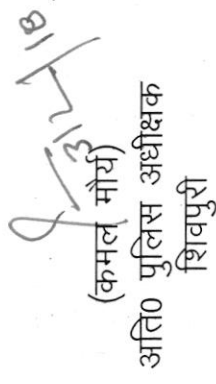 (कमल मौर्य)
अति0 पुलिस अधीक्षक
शिवपुरी